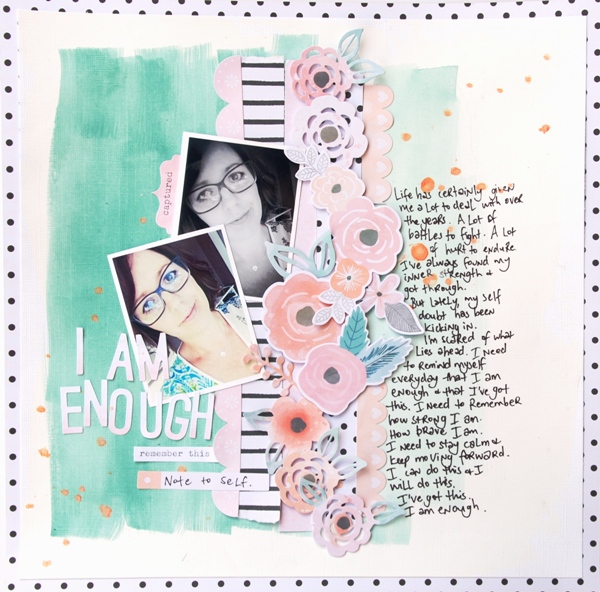 captured
I AM
ENOUGH
remember this
Note to self.
Life has certainly given
me a lot to deal with over
the years. A lot of
battles to fight. A lot
of hurt to endure
I've always found my
inner strength &
got through.
But lately, my self
doubt has been
kicking in.
I'm scared of what
lies ahead. I need
to remind myself
everyday that I am
enough & that I've got
this. I need to remember
how strong I am.
How brave I am.
I need to stay calm &
keep moving forward.
I can do this & I
will do this.
I've got this.
I am enough.